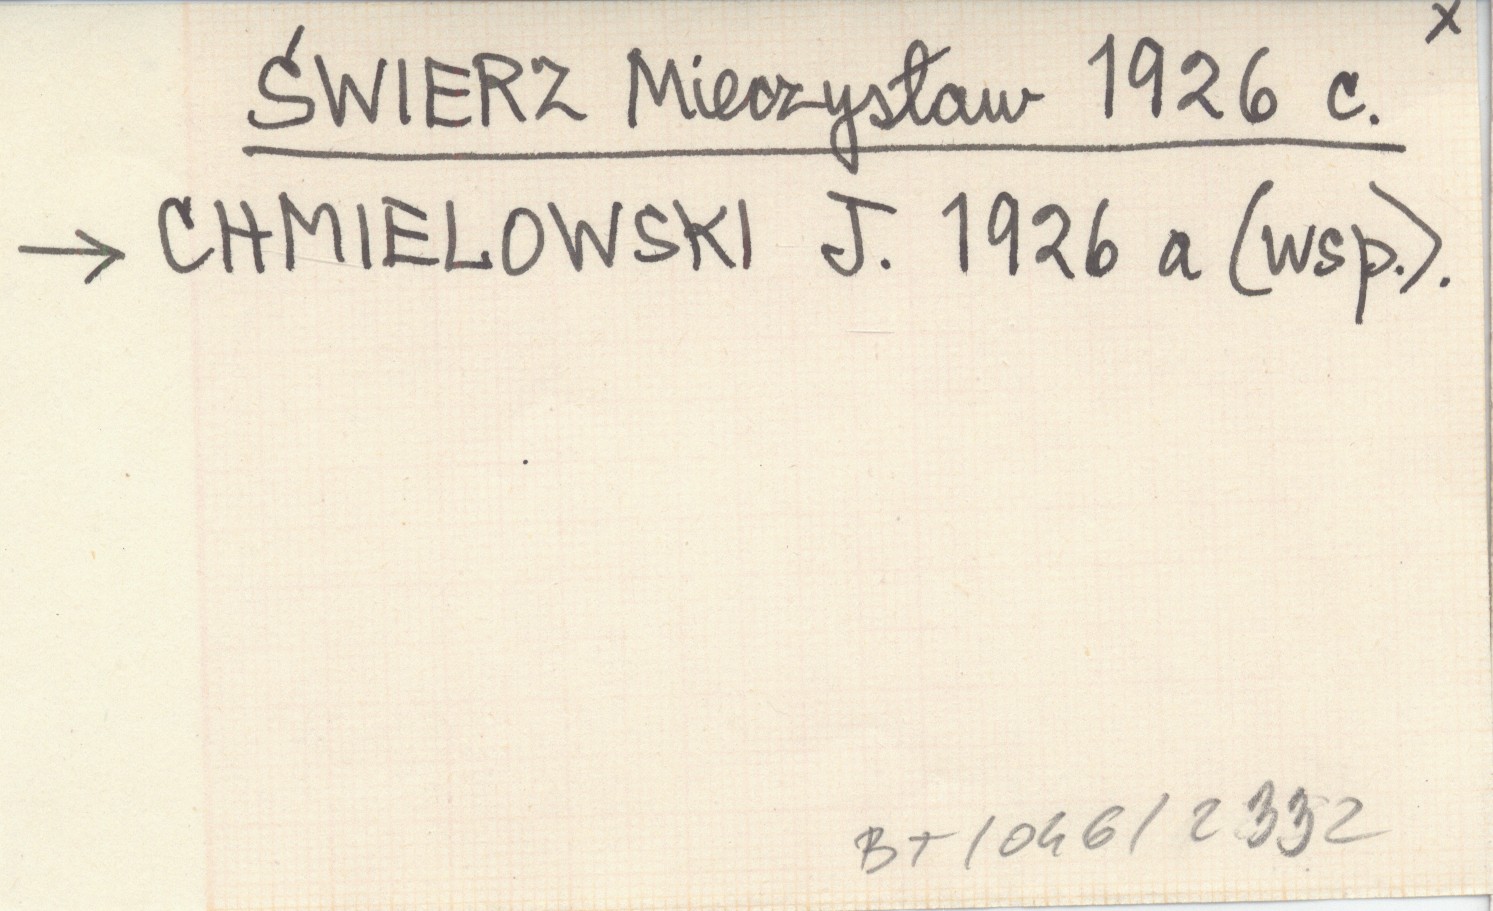 x
ŚWIERZ Mieczysław 1926 c.
→ CHMIELOWSKI J. 1926 a (wsp.).
BT/046/2332